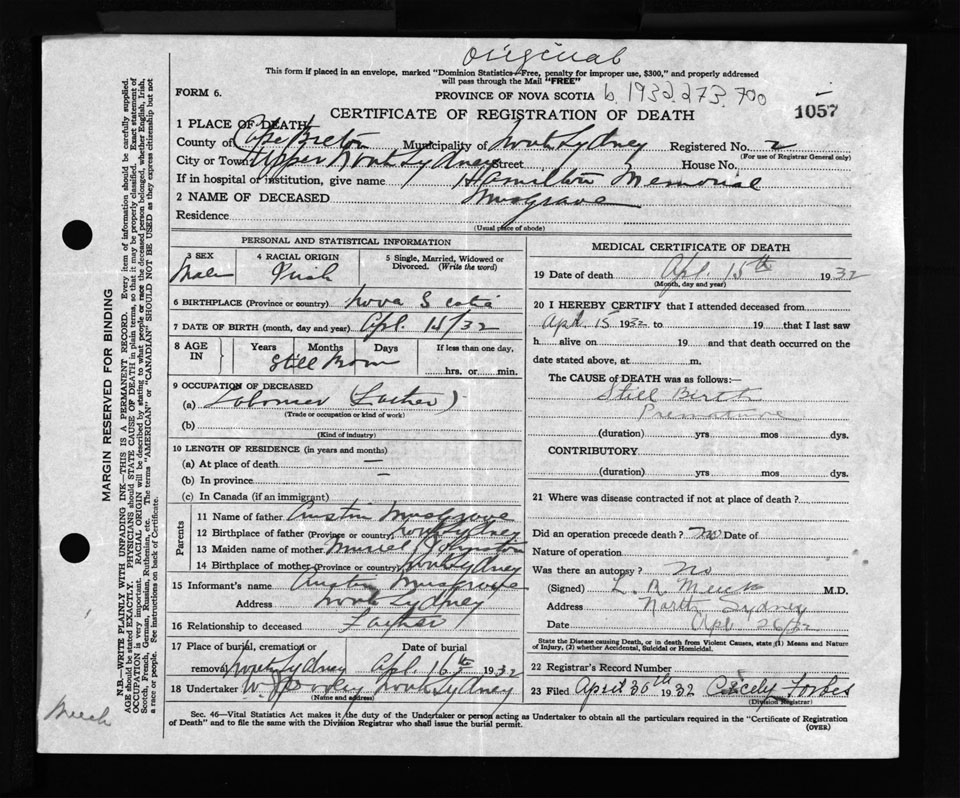 original
This form if placed in an envelope, marked "Dominion Statistics—Free, penalty for improper use, $300," and properly addressed
will pass through the Mail "FREE"
FORM 6.
PROVINCE OF NOVA SCOTIA b. 1932.273.700
1057
CERTIFICATE OF REGISTRATION OF DEATH
1 PLACE OF DEATH
County of Cape Breton Municipality of North Sydney Registered No. 2
(For use of Registrar General only)
City or Town Upper North Sydney Street House No.
If in hospital or institution, give name Hamilton Memorial
2 NAME OF DECEASED Musgrave
Residence
(Usual place of abode)
PERSONAL AND STATISTICAL INFORMATION
3 SEX 4 RACIAL ORIGIN 5 Single, Married, Widowed or
Divorced. (Write the word)
Male Irish
6 BIRTHPLACE (Province or country) Nova Scotia
7 DATE OF BIRTH (month, day and year) Apl. 14/32
8 AGE
IN
Years Months Days If less than one day,
Still Born
hrs. or min.
9 OCCUPATION OF DECEASED
(a) Labourer (Father)
(Trade or occupation or kind of work)
(b)
(Kind of industry)
10 LENGTH OF RESIDENCE (in years and months)
(a) At place of death —
(b) In province —
(c) In Canada (if an immigrant)
Parents
11 Name of father Austin Musgrave
12 Birthplace of father (Province or country) North Sydney
13 Maiden name of mother Muriel Johnston
14 Birthplace of mother (Province or country) North Sydney
15 Informant's name Austin Musgrave
Address North Sydney
16 Relationship to deceased Father
17 Place of burial, cremation or Date of burial
removal North Sydney Apl. 16th 1932
18 Undertaker W. North Sydney
(Name and address)
MEDICAL CERTIFICATE OF DEATH
19 Date of death Apl. 15th 1932
(Month, day and year)
20 I HEREBY CERTIFY that I attended deceased from
Apl. 15 1932 to 19 that I last saw
h alive on 19 and that death occurred on the
date stated above, at m.
The CAUSE of DEATH was as follows:—
Still Birth
Premature
(duration) yrs mos dys.
CONTRIBUTORY
(duration) yrs mos dys.
21 Where was disease contracted if not at place of death?
Did an operation precede death? no Date of
Nature of operation
Was there an autopsy? no
(Signed) L. R. Meech M.D.
Address North Sydney
Date Apl. 26/32
State the Disease causing Death, or in death from Violent Causes, state (1) Means and Nature
of Injury, (2) whether Accidental, Suicidal or Homicidal.
22 Registrar's Record Number
23 Filed April 30th 1932 Cecely Forbes
(Division Registrar)
Sec. 46—Vital Statistics Act makes it the duty of the Undertaker or person acting as Undertaker to obtain all the particulars required in the "Certificate of Registration
of Death" and to file the same with the Division Registrar who shall issue the burial permit.
(OVER)
MARGIN RESERVED FOR BINDING
N.B.—WRITE PLAINLY WITH UNFADING INK—THIS IS A PERMANENT RECORD. Every item of information should be carefully supplied.
AGE should be stated EXACTLY. PHYSICIANS should STATE CAUSE OF DEATH in plain terms, so that it may be properly classified. Exact statement of
OCCUPATION is very important. RACIAL ORIGIN will be described by stating to what people or race the deceased person belonged, whether English, Irish,
Scotch, French, German, Russian, Ruthenian, etc. The terms "AMERICAN" or "CANADIAN" SHOULD NOT BE USED as they express citizenship but not
a race or people. See instructions on back of Certificate.
Meech